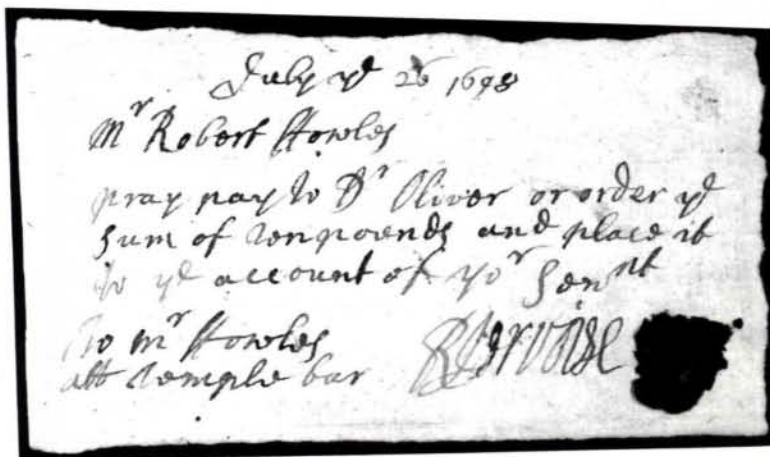 July ye 26 1698
Mr Robert Fowles
pray pay to Dr Oliver or order ye
Sum of Ten pounds and place it
to ye account of yor Servnt
To mr Fowles
att Temple bar RJervoise